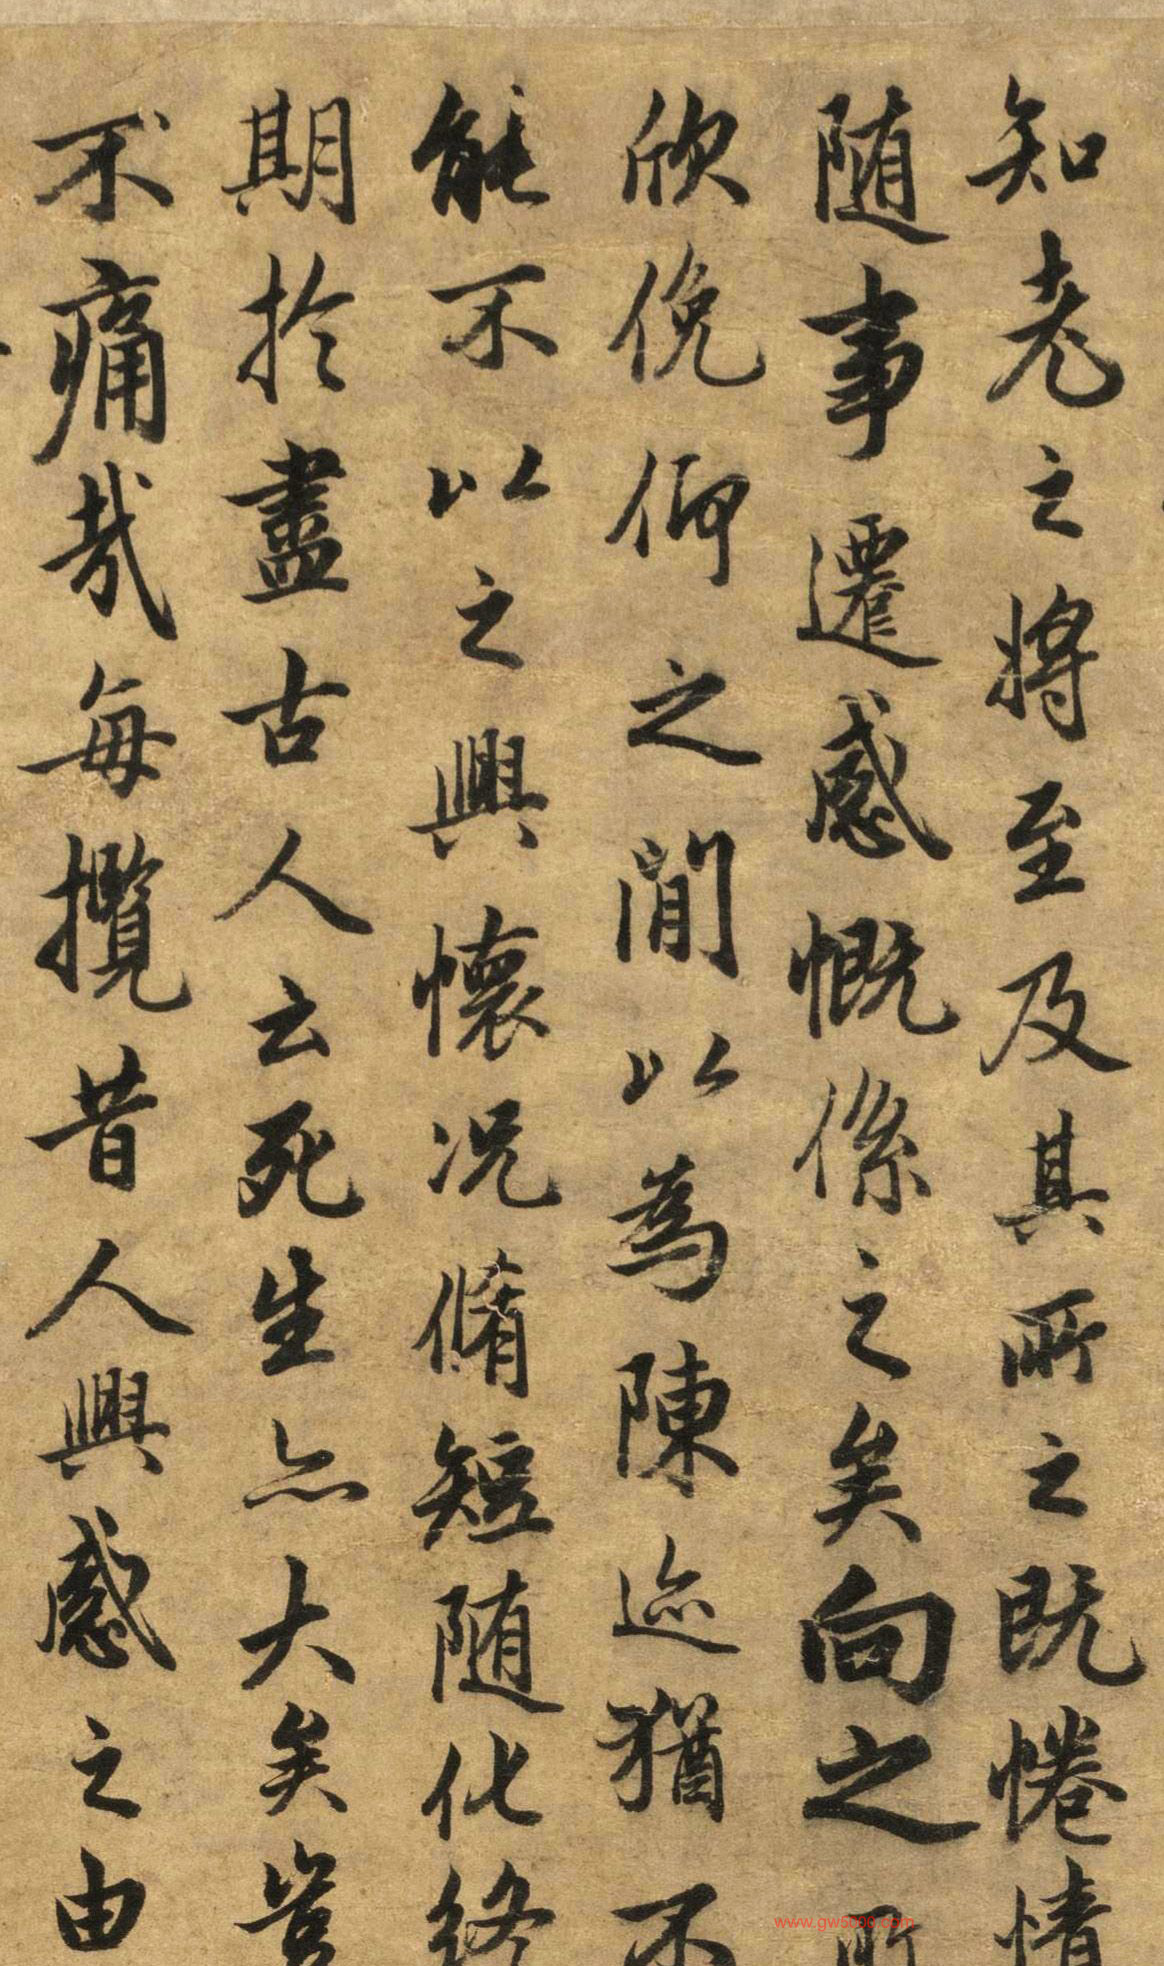 知老之將至及其所之既惓情
随事遷感慨係之矣向之所
欣俛仰之閒以為陳迹猶不
能不以之興懷况脩短随化終
期於盡古人云死生亦大矣豈
不痛哉每攬昔人興感之由
www.gw5000.com